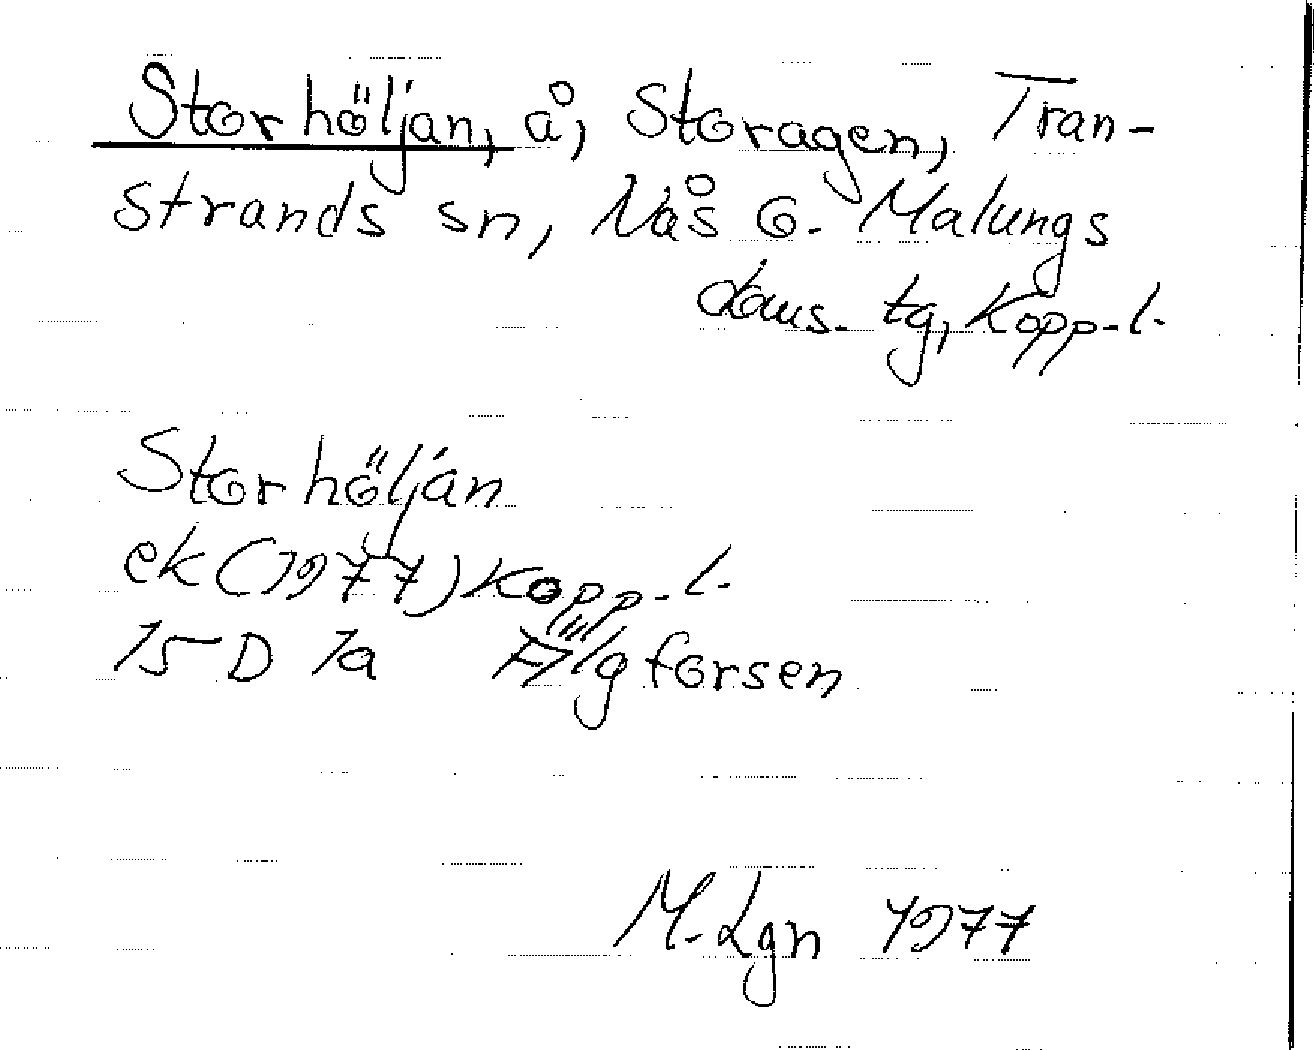 Storhöljan, å, Storagen, Tran-
strands sn, Nås o. Malungs
doms. tg, Kopp-l.
Storhöljan
ek (1977) Kopp-l.
15 D 1a Älgforsen
M. Lgn 1977